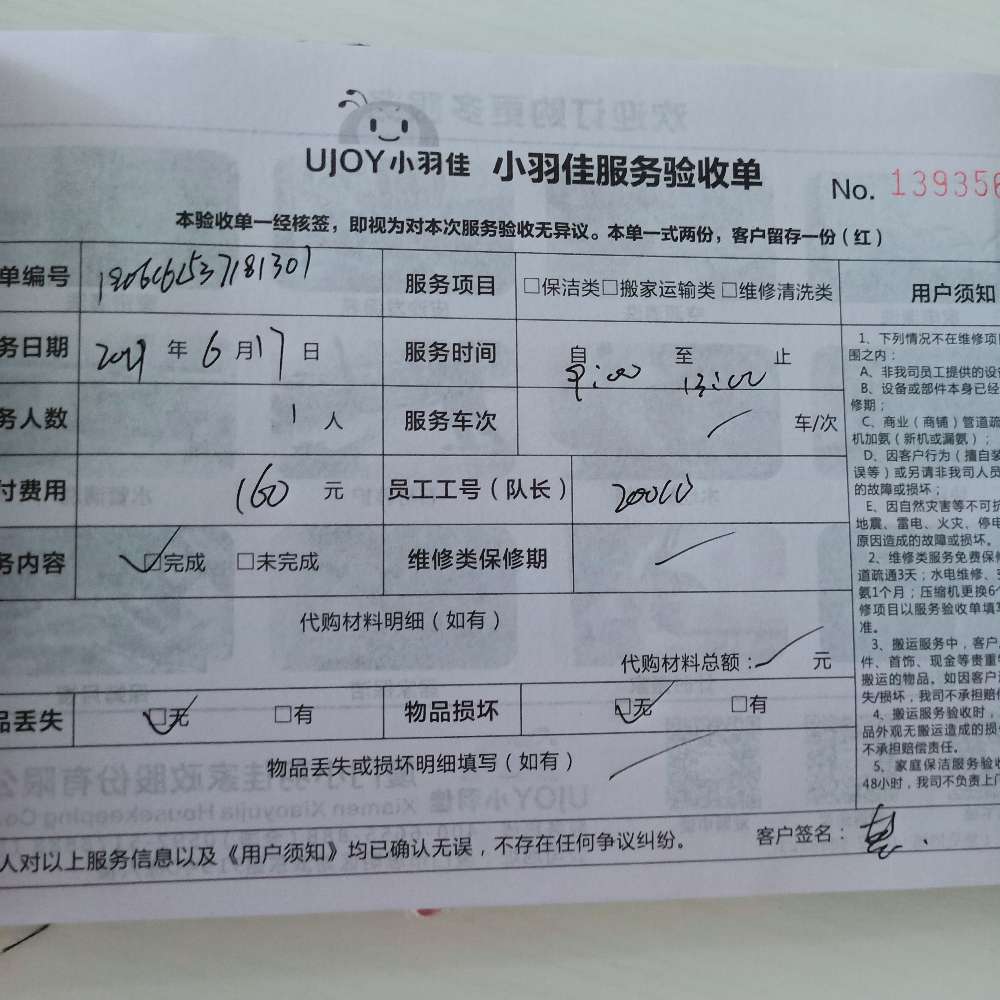 UJOY小羽佳 小羽佳服务验收单
No. 139356
本验收单一经核签，即视为对本次服务验收无异议。本单一式两份，客户留存一份（红）
单编号 服务项目 □保洁类□搬家运输类 □维修清洗类
务日期 年 6 月 17 日 服务时间 自 9:00 至 13:00 止
务人数 1 人 服务车次 车/次
付费用 160 元 员工工号（队长）
务内容 □完成 □未完成 维修类保修期
代购材料明细（如有）
代购材料总额： 元
品丢失 □无 □有 物品损坏 □无 □有
物品丢失或损坏明细填写（如有）
人对以上服务信息以及《用户须知》均已确认无误，不存在任何争议纠纷。 客户签名：
用户须知
1、下列情况不在维修项
围之内：
A、非我司员工提供的设
B、设备或部件本身已经
修期；
C、商业（商铺）管道疏
机加氨（新机或漏氨）；
D、因客户行为（擅自装
误等）或另请非我司人员
的故障或损坏；
E、因自然灾害等不可抗
地震、雷电、火灾、停电
原因造成的故障或损坏。
2、维修类服务免费保修
道疏通3天；水电维修、
氨1个月；压缩机更换6
修项目以服务验收单填写
准。
3、搬运服务中，客户
件、首饰、现金等贵重
搬运的物品。如因客户
失/损坏，我司不承担赔
4、搬运服务验收时，
品外观无搬运造成的损
不承担赔偿责任。
5、家庭保洁服务验收
48小时，我司不负责上